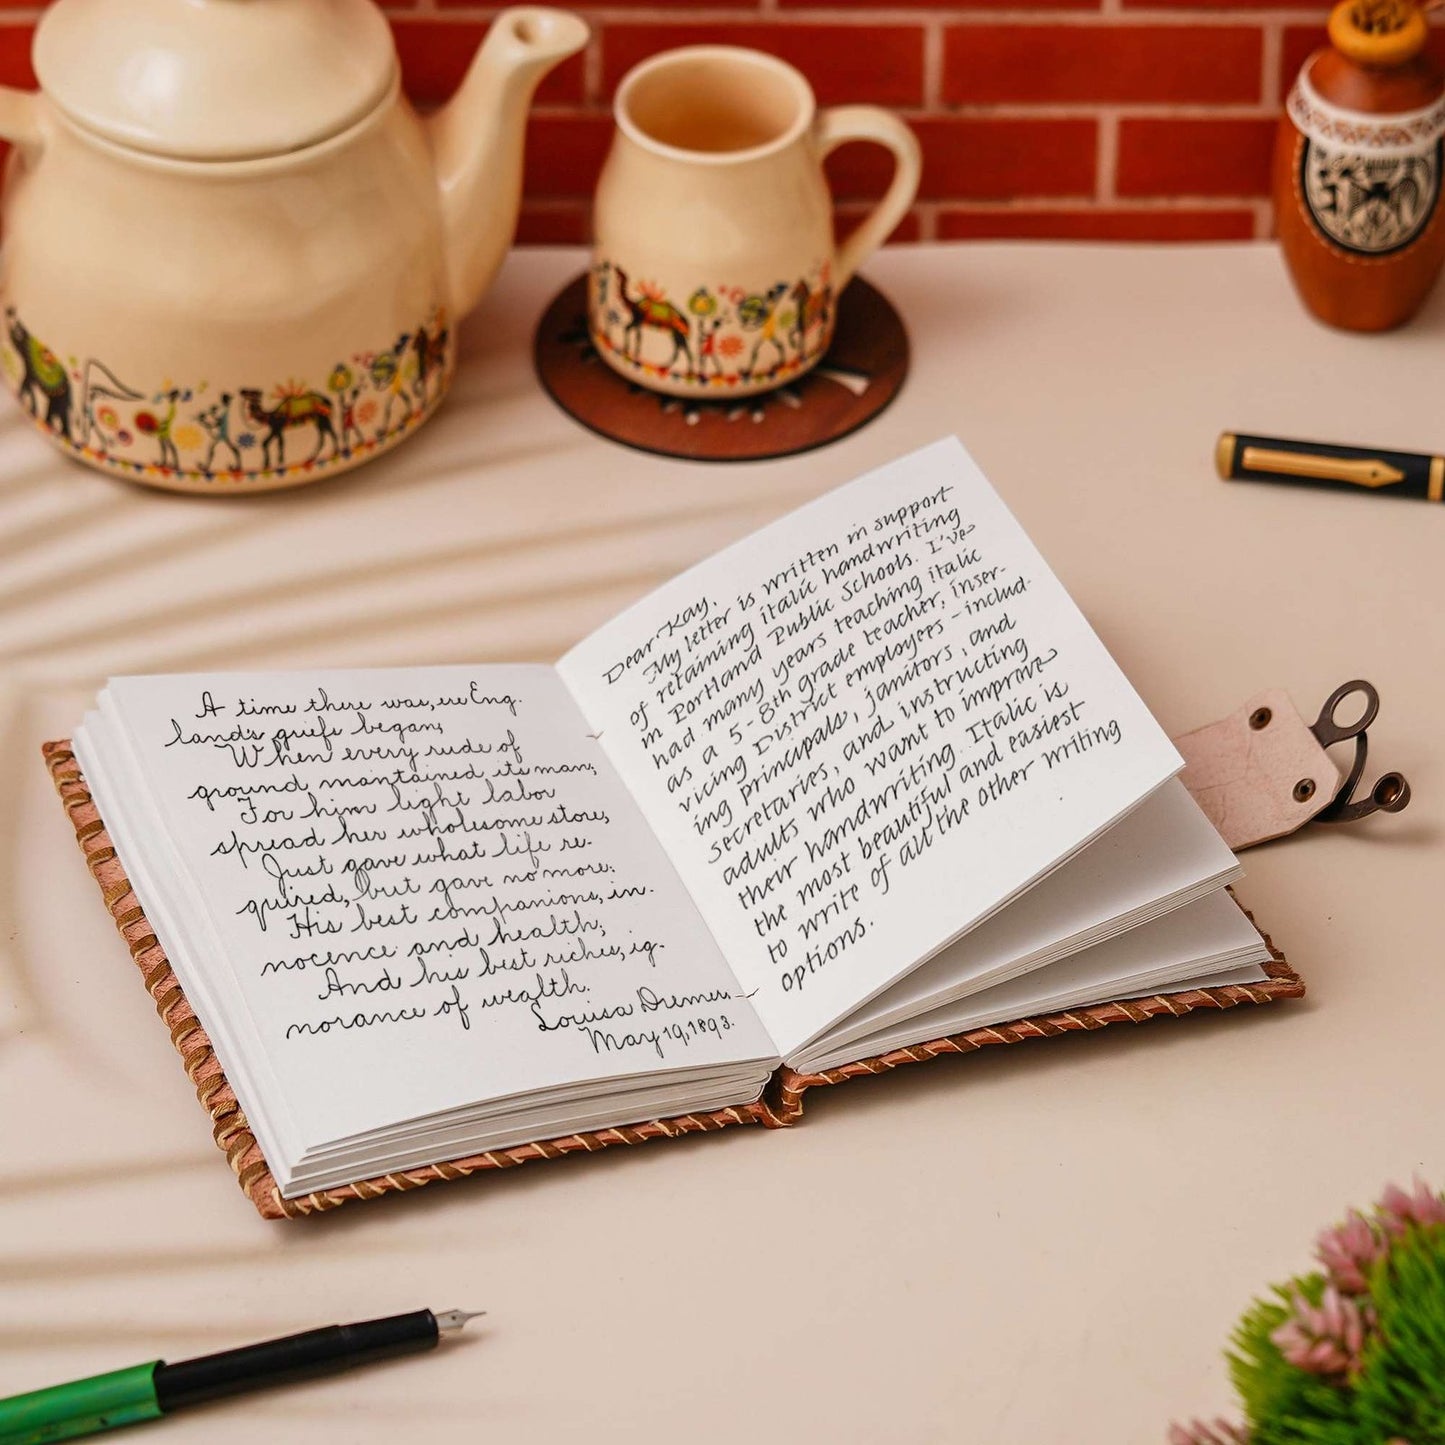 A time there was, ere Eng-
land's griefs began,
When every rude of
ground maintained its man;
For him light labor
spread her wholesome store,
Just gave what life re-
quired, but gave no more:
His best companions, in-
nocence and health;
And his best riches, ig-
norance of wealth.
Louisa Diemer.
May 19, 1893.
Dear Kay,
My letter is written in support
of retaining italic handwriting
in Portland Public Schools. I've
had many years teaching italic
as a 5-8th grade teacher, inser-
vicing District employees - includ-
ing principals, janitors, and
secretaries, and instructing
adults who want to improve
their handwriting. Italic is
the most beautiful and easiest
to write of all the other writing
options.